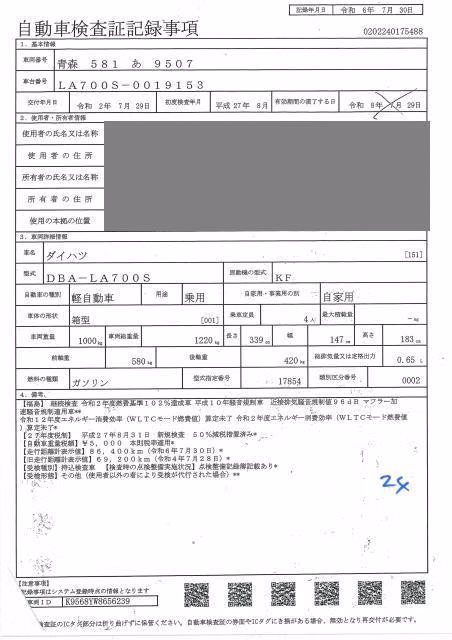 記録年月日 令和 6年 7月 30日
自動車検査証記録事項
0202240175488
1. 基本情報
車両番号 青森 581 あ 9507
車台番号 LA700S-0019153
交付年月日 令和 2年 7月 29日 初度検査年月 平成 27年 8月 有効期間の満了する日 令和 8年 7月 29日
2. 使用者・所有者情報
使用者の氏名又は名称
使用者の住所
所有者の氏名又は名称
所有者の住所
使用の本拠の位置
3. 車両詳細情報
車名 ダイハツ [151]
型式 DBA-LA700S 原動機の型式 KF
自動車の種別 軽自動車 用途 乗用 自家用・事業用の別 自家用
車体の形状 箱型 [001] 乗車定員 4人 最大積載量 -kg
車両重量 1000kg 車両総重量 1220kg 長さ 339cm 幅 147cm 高さ 183cm
前軸重 580kg 後軸重 420kg 総排気量又は定格出力 0.65L
燃料の種類 ガソリン 型式指定番号 17854 類別区分番号 0002
4. 備考
【福島】 継続検査 令和2年度燃費基準102%達成車 平成10年騒音規制車 近接排気騒音規制値96dB マフラー加
速騒音規制適用車**
令和12年度エネルギー消費効率(WLTCモード燃費値)算定未了 令和2年度エネルギー消費効率(WLTCモード燃費値
)算定未了*
【27年度税制】 平成27年8月31日 新規検査 50%減税措置済み*
【自動車重量税額】 ¥5,000 本則税率適用*
【走行距離計表示値】 86,400km(令和6年7月30日)*
【旧走行距離計表示値】 69,200km(令和4年7月28日)*
【受検種別】持込検査車 【検査時の点検整備実施状況】点検整備記録簿記載あり*
【受検形態】その他(使用者以外の者により受検が代行された場合)**
24
【注意事項】
記録事項はシステム登録時点の情報となります
車両ID K9568YW8656239
検査証のICタグ部分は折り曲げずに保管ください。自動車検査証の券面やICタグにき損がある場合、無効となり再交付が必要です。